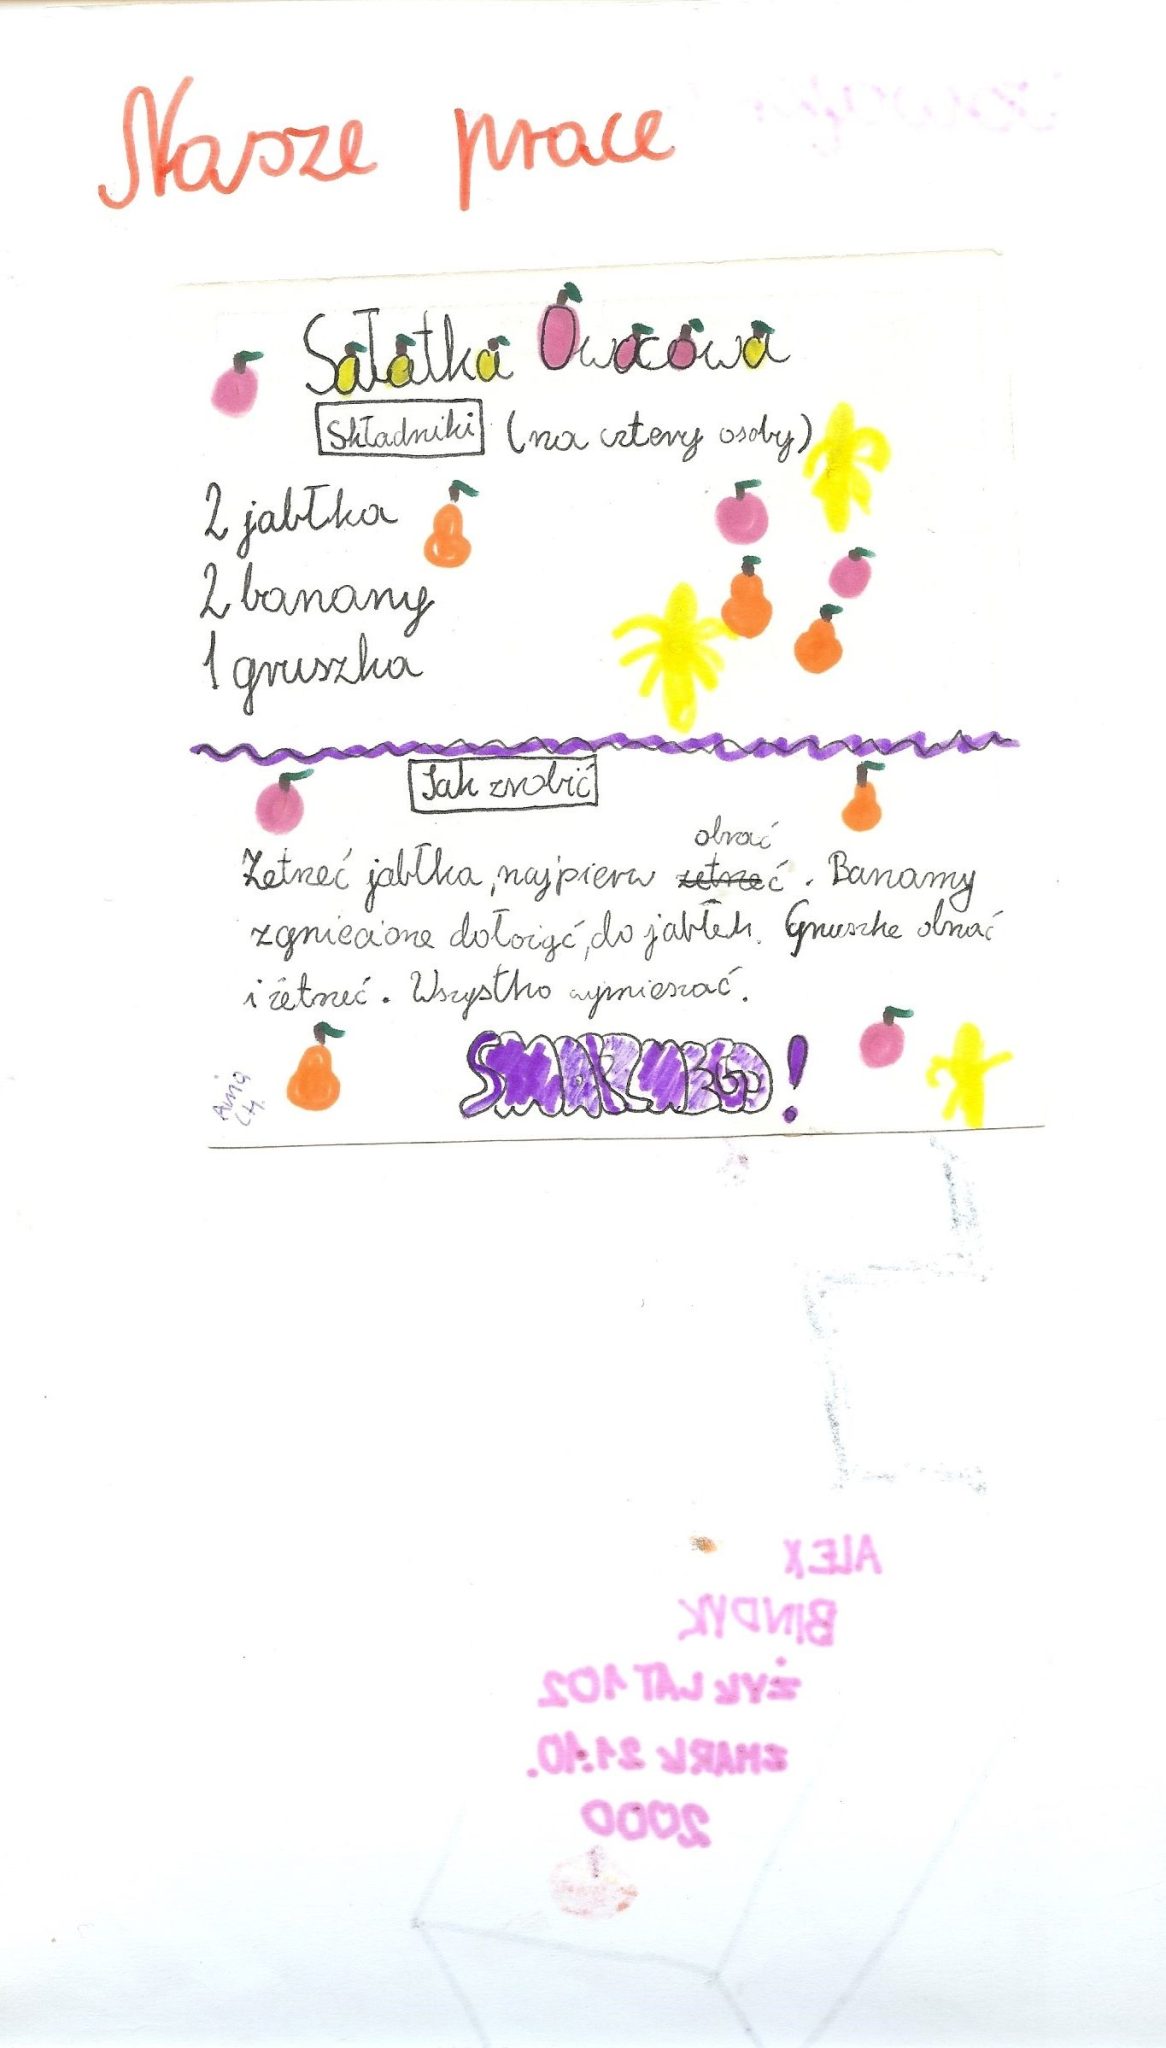 Nasze prace
Sałatka Owocowa
Składniki (na cztery osoby)
2 jabłka
2 banany
1 gruszka
Jak zrobić
obrać
Zetrzeć jabłka, najpierw zetrzeć. Banany
zgniecione dołożyć, do jabłek. Gruszke obrać
i zetrzeć. Wszystko wymieszać.
SMACZNEGO!
Ania
CH.
ALEX
BINDYK
ŻYŁ LAT 102
ZMARŁ 21.10.
2000